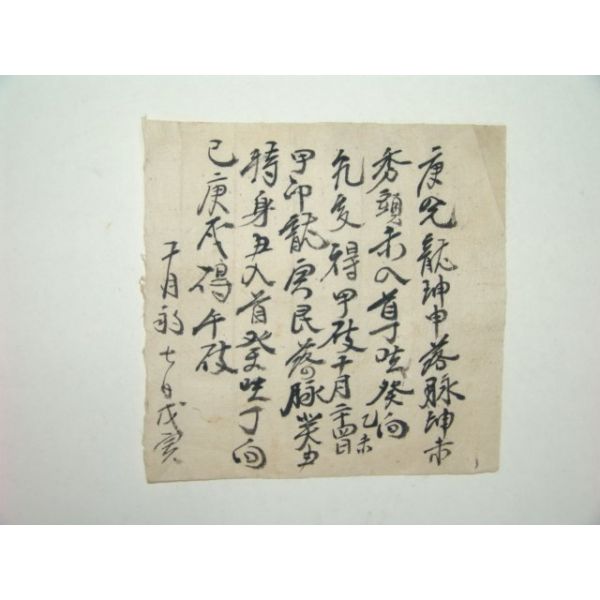 庚兌龍坤申落脉坤未
秀頭未入首丁坐癸向
允亥得甲破十月二十四日乙未
甲卯龍寅艮落脉癸丑
轉身丑入首癸坐丁向
巳庚戌得午破
十月初七日戊寅